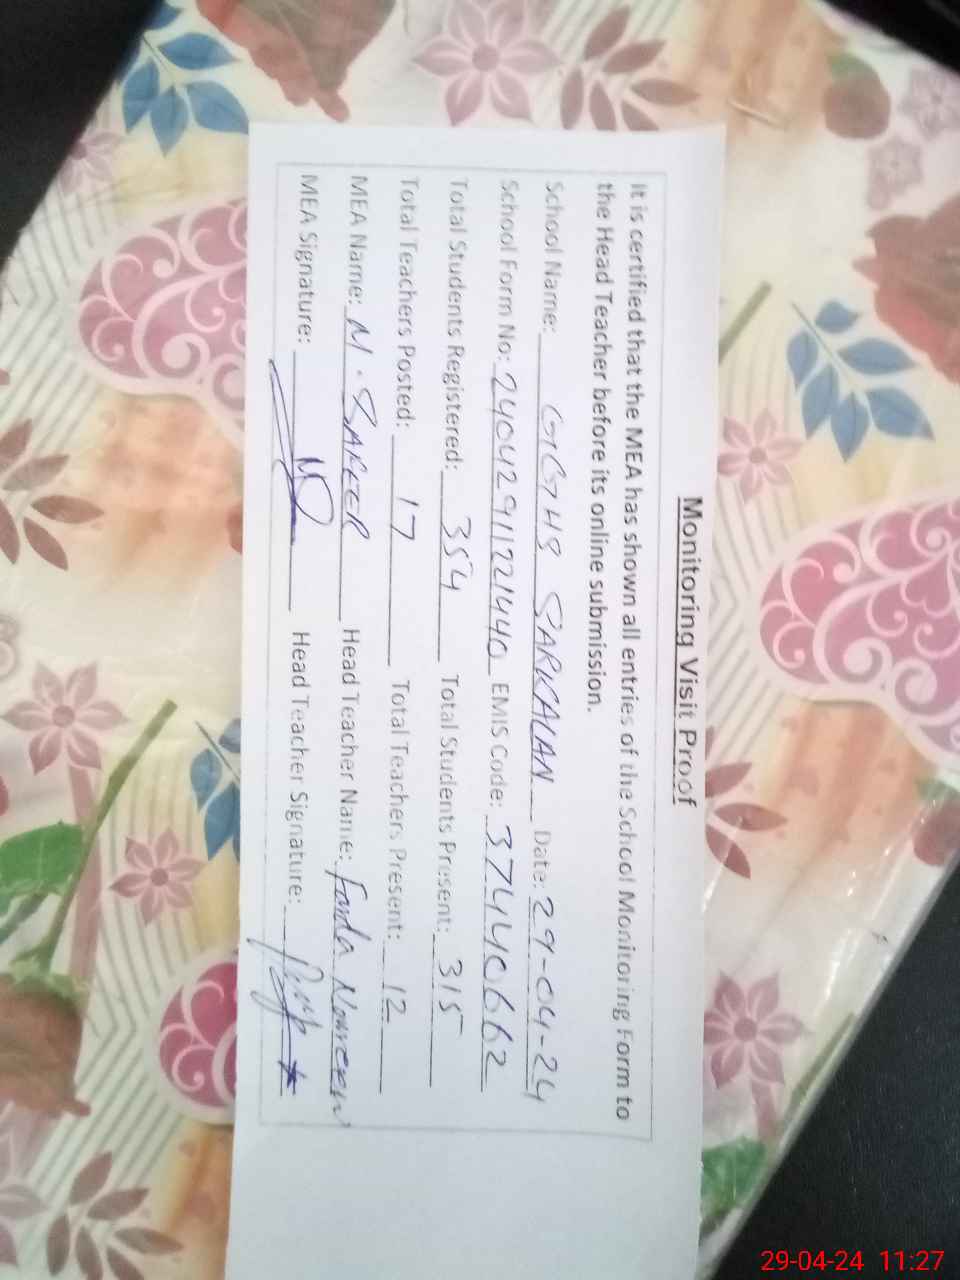 Monitoring Visit Proof
It is certified that the MEA has shown all entries of the School Monitoring Form to
the Head Teacher before its online submission.
School Name: GGHS SARKALAN Date: 29-04-24
School Form No: 24042911221440 EMIS Code: 37440662
Total Students Registered: 354 Total Students Present: 315
Total Teachers Posted: 17 Total Teachers Present: 12
MEA Name: M. SAFEER Head Teacher Name: Farda Nowreen
MEA Signature: Head Teacher Signature:
29-04-24 11:27